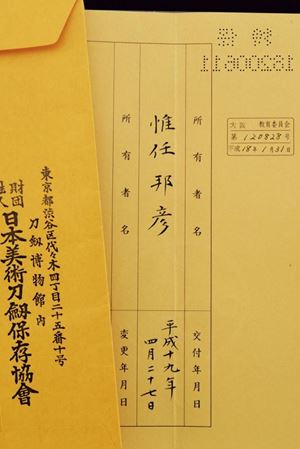 大阪 教育委員会
第120828号
平成18年1月31日
所有者名
交付年月日
惟任邦彦
平成十九年
四月二十七日
所有者名
変更年月日
東京都渋谷区代々木四丁目二十五番十号
刀劔博物館内
財団
法人
日本美術刀劔保存協會